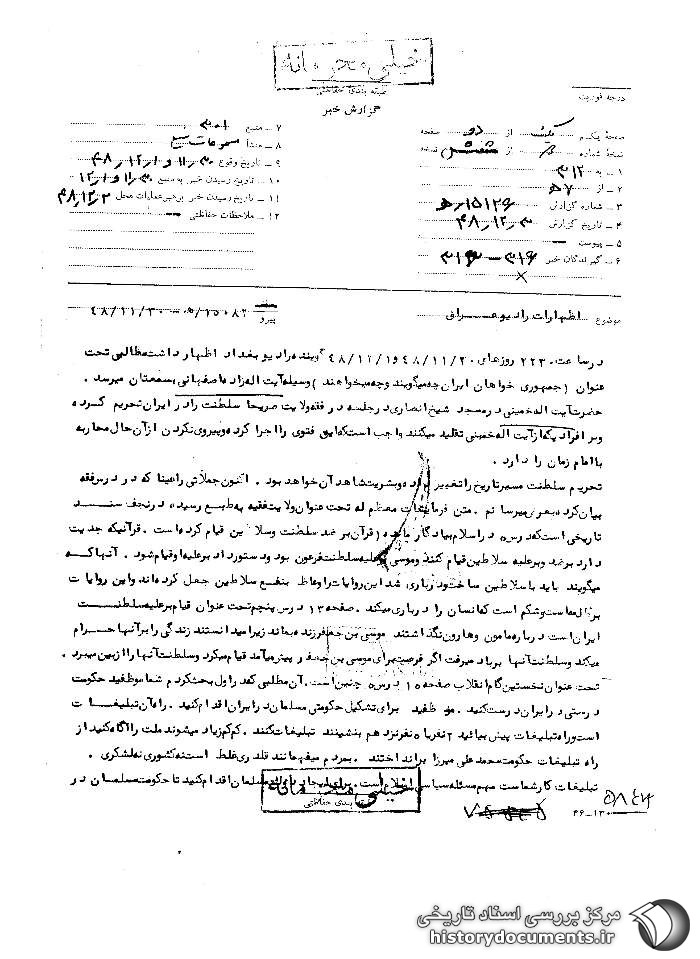 خیلی محرمانه
طبقه بندی حفاظتی
گزارش خبر
درجه فوریت
صفحهٔ یکم از دو صفحه
نسخهٔ شماره از شش نسخه
۱ ـ به ۳۱۲
۲ ـ از ۵۷
۳ ـ شماره گزارش ۱۵۱۲۶/ه
۴ ـ تاریخ گزارش ۴۸/۱۲/۳
۵ ـ پیوست ــ
۶ ـ گیرندگان خبر ۳۱۶ ـ
۷ ـ منبع
۸ ـ منشأ مسموعات منبع
۹ ـ تاریخ وقوع ۳۰/۱۱ و ۴۸/۱۲/۱
۱۰ ـ تاریخ رسیدن خبر به منبع ۳۰/۱۱ و ۱۲/۱
۱۱ ـ تاریخ رسیدن خبر برهبر عملیات محل ۴۸/۱۲/۲
۱۲ ـ ملاحظات حفاظتی ــ
موضوع اظهارات رادیو عراق
پیرو ۱۵۰۸۲/ه ـ ۴۸/۱۱/۳۰
در ساعت ۲۲۳۰ روزهای ۴۸/۱۱/۳۰ و ۴۸/۱۲/۱ گوینده رادیو بغداد اظهار داشت مطالبی تحت
عنوان (جمهوری خواهان ایران چه میگویند وچه میخواهند) وسیله آیت اله زاده اصفهانی بسمعتان میرسد .
حضرت آیت اله خمینی در مسجد شیخ انصاری در جلسه درس فقه ولایت صریحا سلطنت را در ایران تحریم کرده
وبر افرادیکه از آیت اله خمینی تقلید میکنند واجب است که این فتوی را اجرا کرده وپیروی نکردن از آن حال محاربه
با امام زمان را دارد .
تحریم سلطنت مسیر تاریخ را تغییر داده وبشریت شاهد آن خواهد بود . اکنون جملاتی را عینا که در درس فقه
بیان کرده بعرض میرسانم . متن فرمایشات معظم له تحت عنوان ولایت فقیه به طبع رسیده در نجف سند
تاریخی است که درس ده در اسلام بیادگار مانده (قرآن بر ضد سلطنت وسلاطین قیام کرده است . قرآنیکه جدیت
دارد بر ضد وبر علیه سلاطین قیام کنند وموسی بر علیه سلطنت فرعون بود ودستور داد بر علیه او قیام شود . آنها که
میگویند باید با سلاطین ساخت درباری شد این روایات را وعاظ بنفع سلاطین جعل کرده اند واین روایات
برای هاست وشکم است که انسان را درباری میکند . صفحه ۱۳ درس پنجم تحت عنوان قیام بر علیه سلطنت
ایران است درباره مامون وهارون نگذاشتند موسی بن جعفر زنده بماند زیرا میدانستند زندگی را بر آنها حرام
میکند وسلطنت آنها بر باد میرفت اگر فرصت برای موسی بن جعفر پیش میآمد قیام میکرد وسلطنت آنها را از بین میبرد .
تحت عنوان نخستین گام انقلاب صفحه ۱۵ درس ده چنین است . آن مطلبی که در اول بحث کردم شما موظفید حکومت
درستی در ایران درست کنید . موظفید برای تشکیل حکومتی مسلمان در ایران اقدام کنید . راه آن تبلیغات
است وراه تبلیغات پیش بیائید ۲ نفر با ده نفر نزد هم بنشینند تبلیغات کنند . کم کم زیاد میشوند ملت را آگاه کنید از
راه تبلیغات حکومت محمد علی میرزا بر انداختند . بمردم میفهمانند قلدری غلط است نه کشوری نه لشکری .
تبلیغات کار شماست مهم مسئله سیاسی اسلام است . برای ایجاد مسلمان اقدام کنید تا حکومت مسلمان در
خیلی محرمانه
طبقه بندی حفاظتی
۴۶ـ۱۳۰
مرکز بررسی اسناد تاریخی
historydocuments.ir